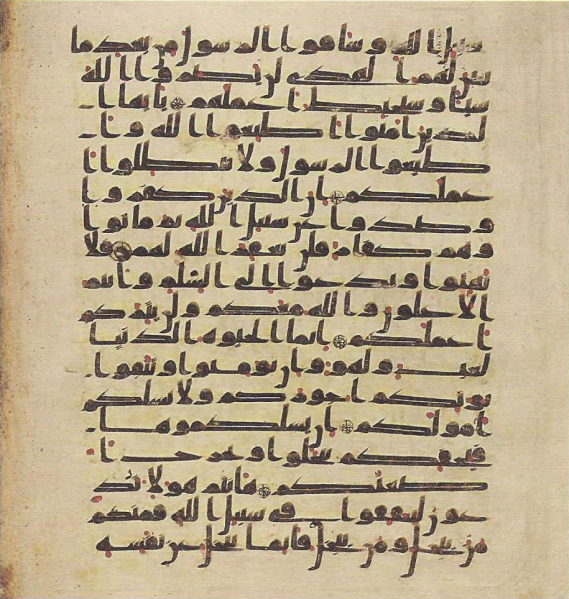 سبيل الله وشاقوا الرسول من بعد ما
تبين لهم الهدى لن يضروا الله
شيا وسيحبط اعملهم يايها ا
لذين امنوا اطيعوا الله وا
طيعوا الرسول ولا تبطلوا ا
عملكم ان الذين كفروا
وصدوا عن سبيل الله ثم ماتوا
وهم كفار فلن يغفر الله لهم فلا
تهنوا وتدعوا الى السلم وانتم
الاعلون والله معكم ولن يتركم
اعملكم انما الحيوه الدنيا
لعب ولهو وان تومنوا وتتقوا
يوتكم اجوركم ولا يسلكم
امولكم ان يسلكموها
فيحفكم تبخلوا ويخرج ا
ضغنكم هانتم هولا تد
عون لتنفقوا في سبيل الله فمنكم
من يبخل ومن يبخل فانما يبخل عن نفسه